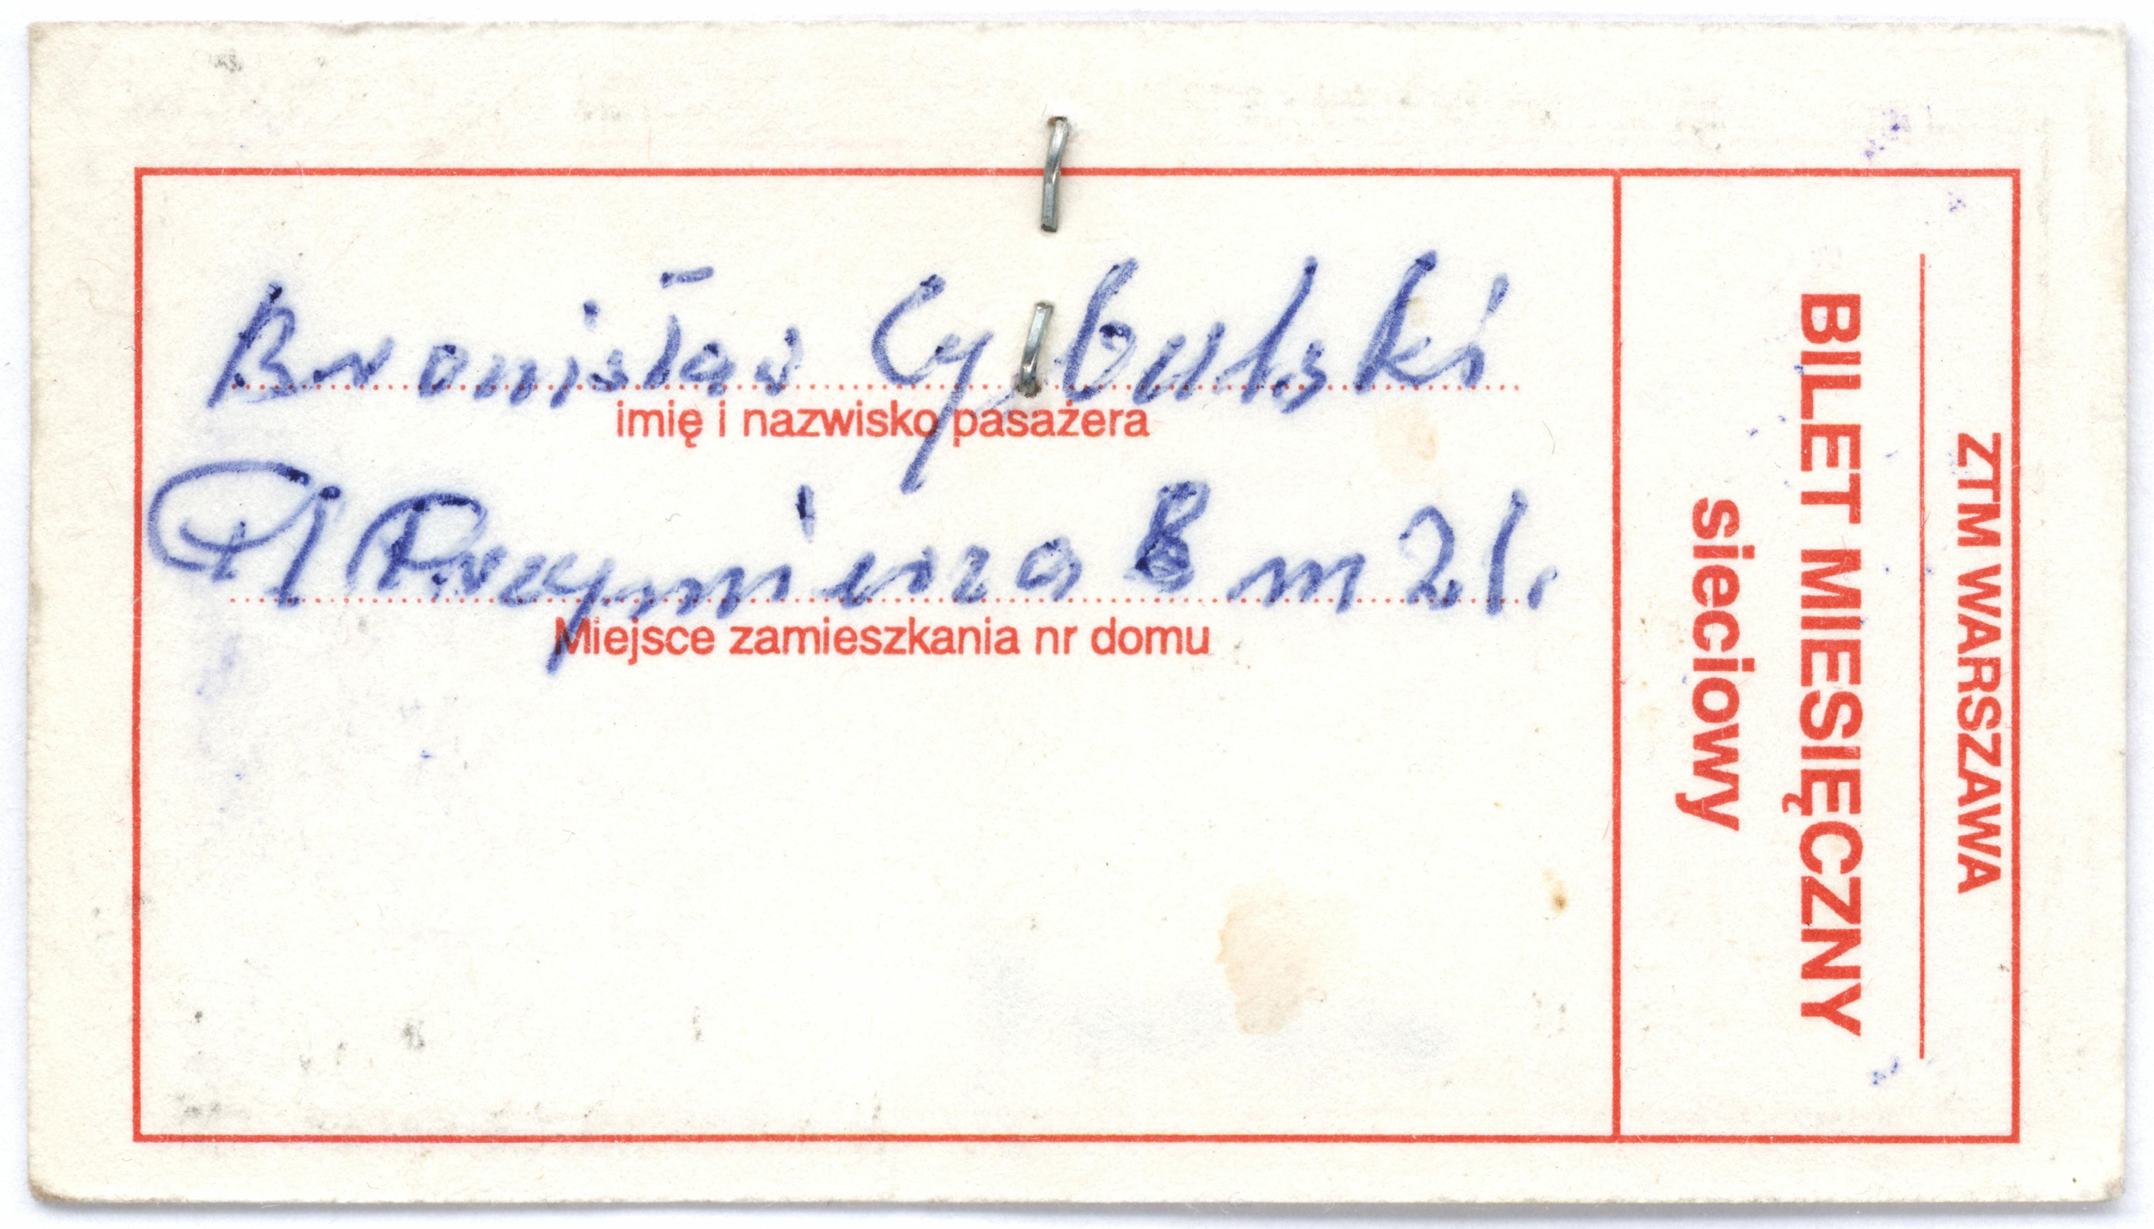 Bronisław Cybulski
imię i nazwisko pasażera
Pl Przymierza 8 m 21.
Miejsce zamieszkania nr domu
ZTM WARSZAWA
BILET MIESIĘCZNY
sieciowy